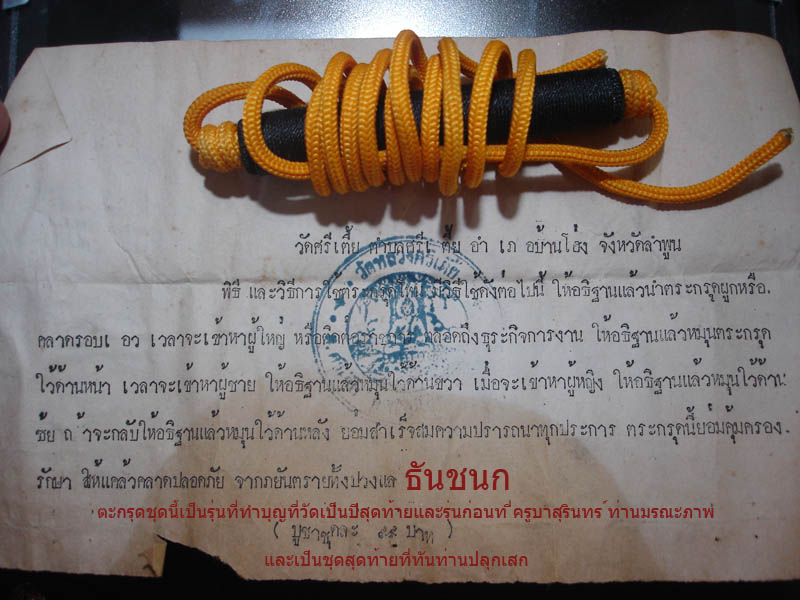 วัดศรีเตี้ย ตำบลศรีเตี้ย อำเภอบ้านโฮ่ง จังหวัดลำพูน
วัดหลวงศรีเตี้ย
พิธี และวิธีการใช้ตระกรุดโทน มีวิธีใช้ดังต่อไปนี้ ให้อธิฐานแล้วนำตระกรุดผูกหรือ.
คลาดรอบเอว เวลาจะเข้าหาผู้ใหญ่ หรือติดต่อราชการ ตลอดถึงธุระกิจการงาน ให้อธิฐานแล้วหมุนตระกรุด
ใว้ด้านหน้า เวลาจะเข้าหาผู้ชาย ให้อธิฐานแล้วหมุนใว้ด้านขวา เมื่อจะเข้าหาผู้หญิง ให้อธิฐานแล้วหมุนใว้ด้าน
ซ้ย ถ้าจะกลับให้อธิฐานแล้วหมุนใว้ด้านหลัง ย่อมสำเร็จสมความปรารถนาทุกประการ ตระกรุดนี้ย่อมคุ้มครอง.
รักษา ให้แคล้วคลาดปลอดภัย จากภยันตรายทั้งปวงแล ธันชนก
ตะกรุดชุดนี้เป็นรุ่นที่ทำบุญที่วัดเป็นปีสุดท้ายและรุ่นก่อนที่ครูบาสุรินทร์ ท่านมรณะภาพ
( บูชาชุดละ ๙๕ บาท )
และเป็นชุดสุดท้ายที่ทันท่านปลุกเสก